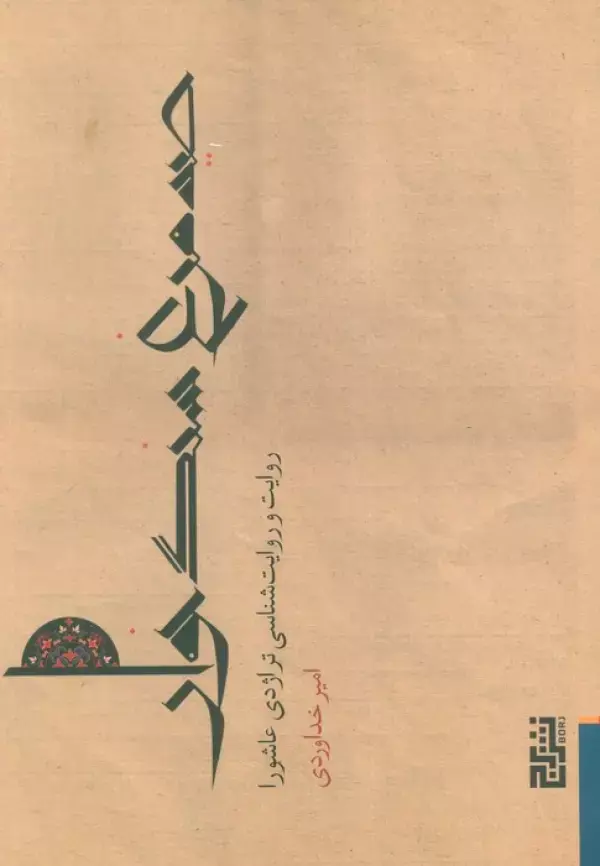 مرغ سنگخوار
روایت و روایت‌شناسی تراژدی عاشورا
امیر خداوردی
نشر برج
BORJ